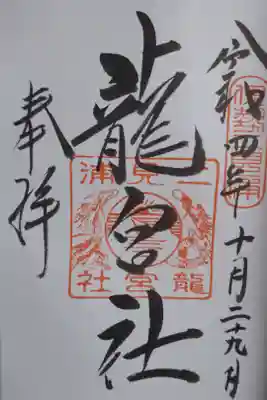 令和四年十月二十九日
龍宮社
二見浦
龍宮社
奉拝